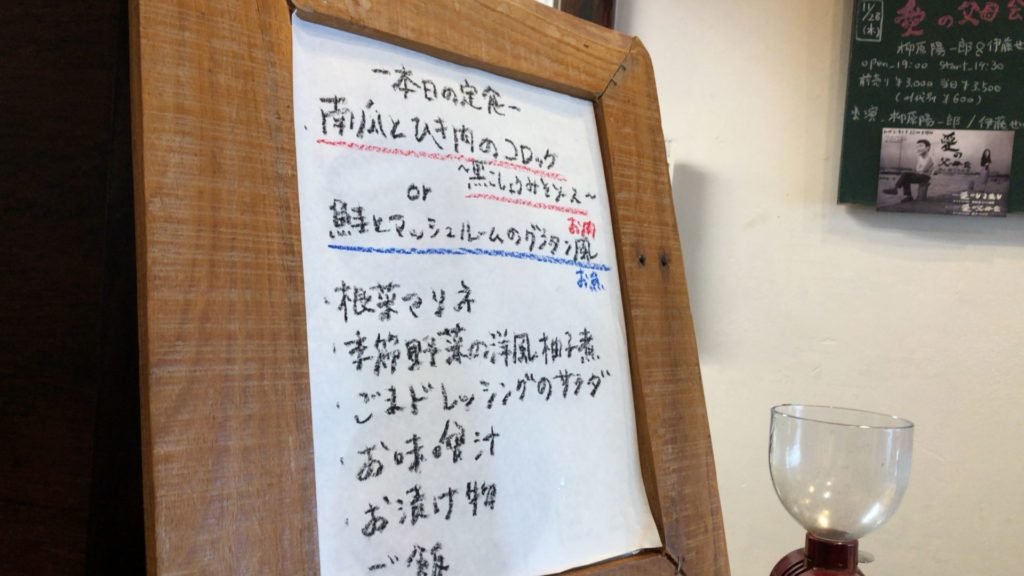 ー本日の定食ー
・南瓜とひき肉のコロッケ
〜黒こしょうみそソース〜
お肉
or
鮭とマッシュルームのグラタン風
お魚
・根菜マリネ
・季節野菜の洋風柚子煮
・ごまドレッシングのサラダ
・お味噌汁
・お漬け物
ご飯
11/28(木)
愛の父母会
柳原陽一郎&伊藤
open_19:00 start_19:30
前売り¥3,000 当日¥3,500
¥600)
出演:柳原陽一郎/伊藤
愛の